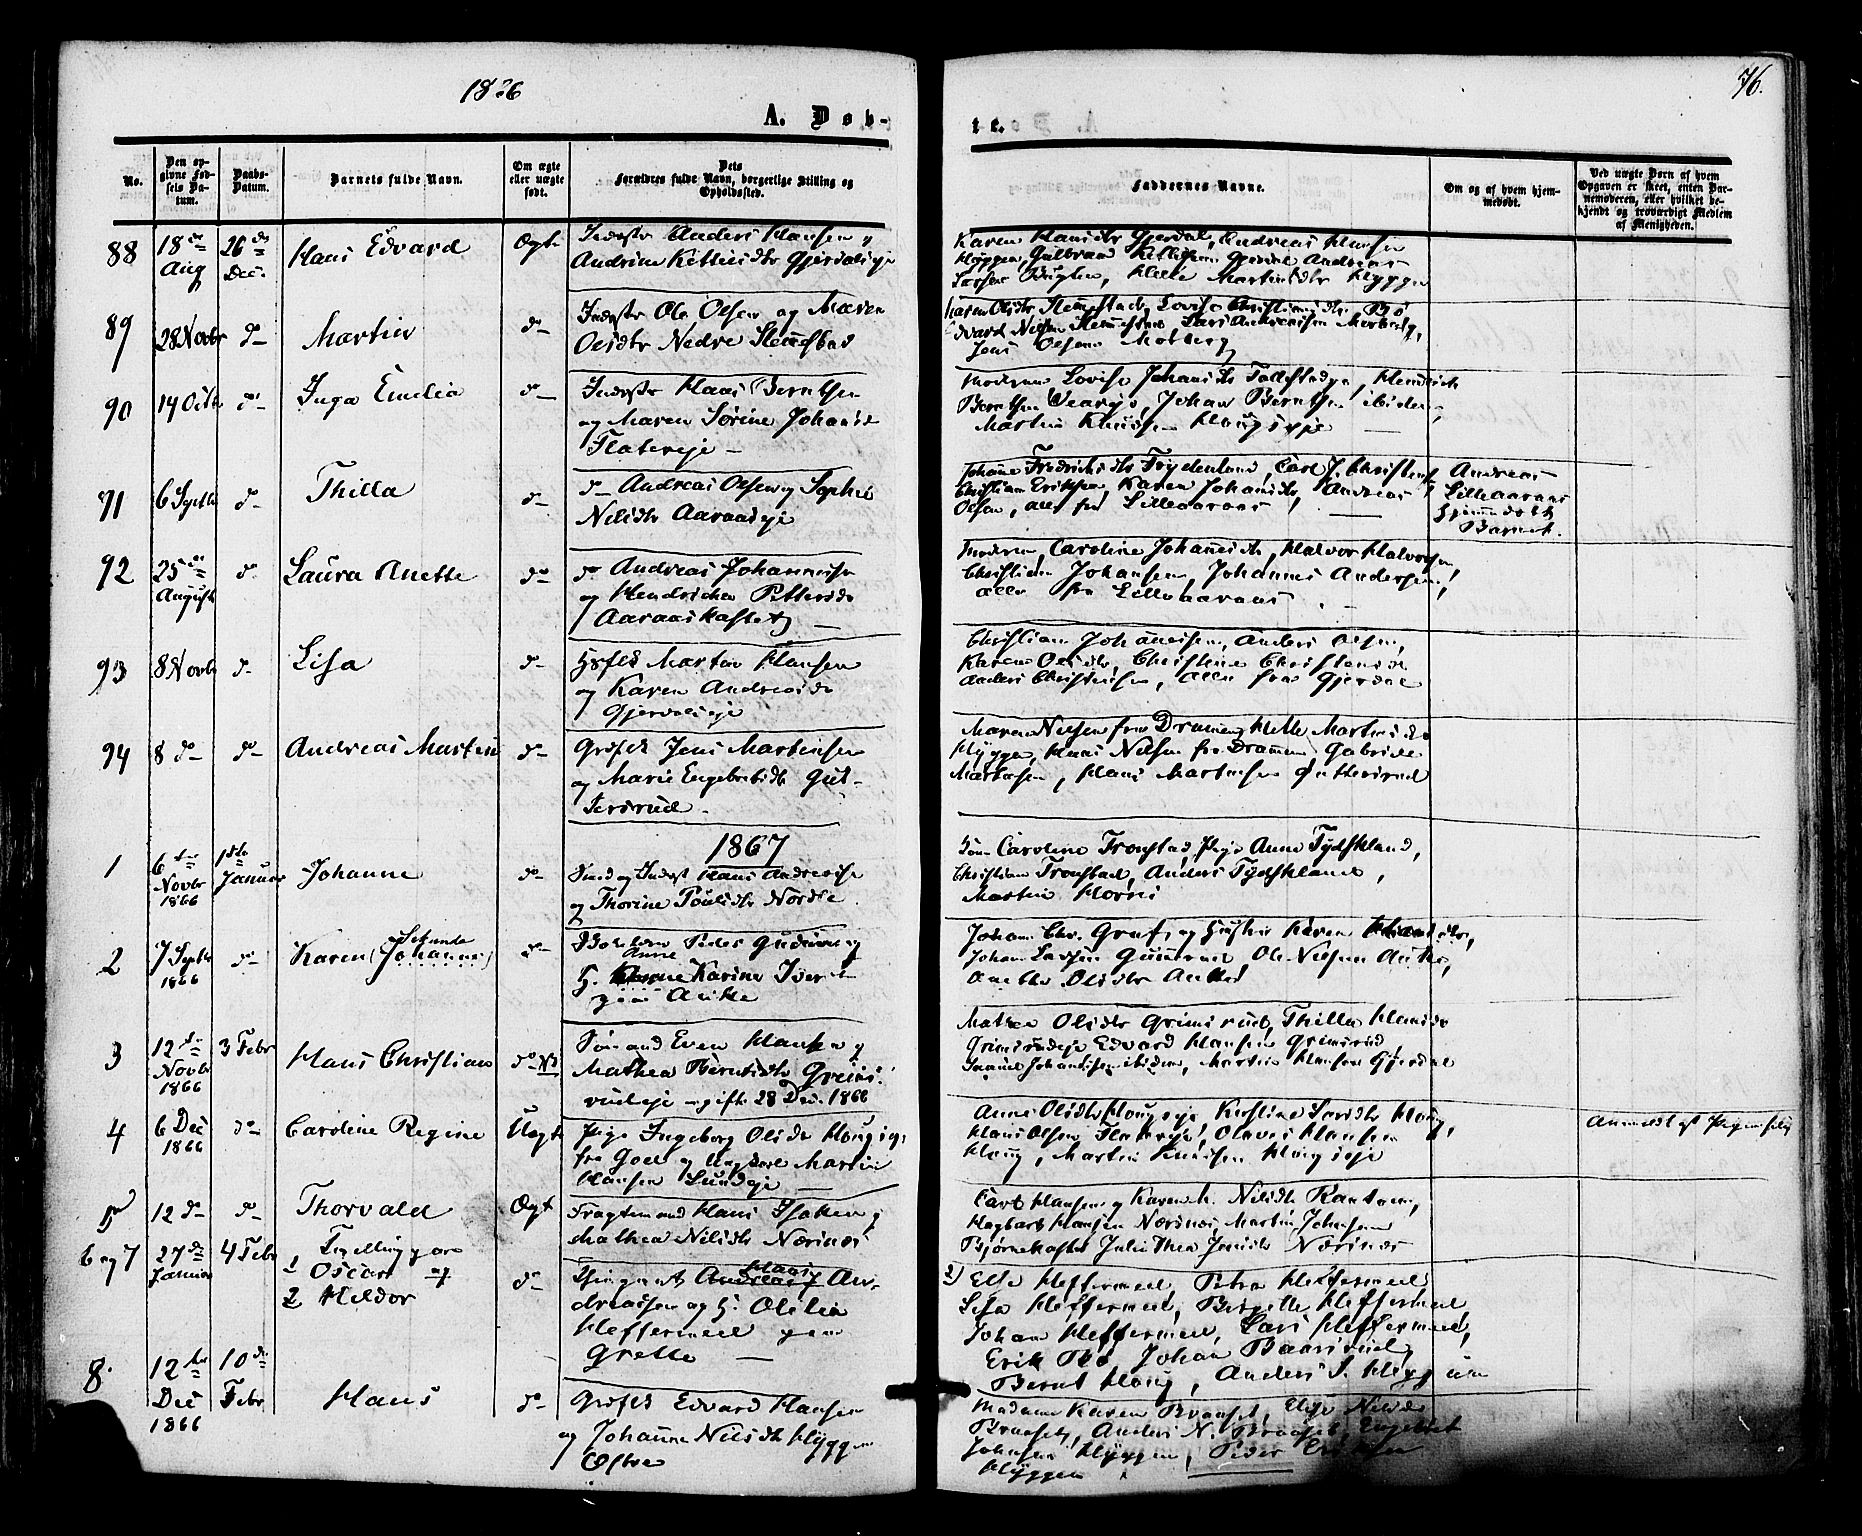 1866
76.
A. Døb-
te.
No.
Den op-
givne Fød-
sels Da-
tum.
Daabs-
Datum.
Barnets fulde Navn.
Om ægte
eller uægte
født.
Dets
Forældres fulde Navn, borgerlige Stilling og
Opholdssted.
Faddernes Navne.
Om og af hvem hjem-
medøbt.
Ved uægte Børn af hvem
Opgaven er skeet, enten Bar-
nemoderen, eller hvilket be-
kjendt og troværdigt Medlem
af Menigheden.
88
18de
Aug
26de
Dec.
Hans Edvard
Ægte
Inderste Anders Hansen,
Andrine Kettilsdtr Gjerdalseje
Karen Hansdtr Gjerdal, Andreas Hansen
Høggen, Gulbrand Gjerdal, Andreas
Larsen Helle Martinsdtr Hyggen
89
28 Novbr
do
Martin
do
Inderste Ole Olsen og Maren
Olsdtr Nedre Stemmestad
Maren Olsdtr Stemmestad, Lovise Christiansdtr Bø
Edvard Nilsen Stemmestad, Lars Andreassen Morberg,
Jens Olsen Morberg
90
14 Octbr
do
Inga Emilie
do
Inderste Hans Berntsen
og Maren Sørine Johansd
Flateseje
Moderen Lovise Johansdtr Tollefstadeje, Hendrick
Berntsen, Johan Berntsen ibidem,
Martin Knudsen Hougseje
91
6 Septbr
do
Thilla
do
do Andreas Olsen og Sophie
Nilsdtr Aaraaseje
Johanne Fredriksdtr Frydenlund, Carl J. Christensen,
Christian Eriksen, Karen Johansdtr, Andreas
Olsen, alle fra Lilleaaraas
Andreas
Lilleaaraas
hjemmedøbt
Barnet.
92
25de
August
do
Laura Anette
do
do Andreas Johannesen
og Hendrikke Pettersdtr
Aaraaskastet
Moderen, Caroline Johannesdtr, Halvor Halvorsen,
Christian Johansen, Johannes Andersen,
alle fra Lilleaaraas
93
8 Novbr
do
Lisa
do
Martin Hansen
og Karen Andreasdtr
Gjerdalseje
Christian Johannesen, Anders Olsen,
Karen Olsdtr, Christine Christensdtr
Anders Christensen, alle fra Gjerdal
94
8 do
do
Andreas Martin
do
Jens Martinsen
og Marie Engebretsdtr Gut-
tersrud
Maren Nilsen fra Drammen, Helle Martinsdtr
Hyggen, Hans Nilsen fra Drammen, Gabriel
Martinsen, Hans Martinsen Guttersrud
1867
1
6te
Novbr
1866
1ste
Januar
Johanne
do
Smed og Inderst Hans Andreassen
og Thorine Poulsdtr Nordre
Caroline Tronstad, Pige Anne Tydskland,
Christian Tronstad, Anders Tydskland,
Martin Hornes
2
7 Septbr
1866
do
Karen (Johanne) Sekunda
do
Peder Gudmunds
Anne
Karine Iver
Auke
Johan Chr. Graf og Hustru Karen Hansdtr,
Johan Larsen Gunnerud, Ole Nilsen Auke,
Olsdtr Auke
3
12te
Novbr
1866
3 Febr
Hans Christian
do NB
Sømand Even Hansen og
Mathea Berntsdtr Grims-
rudeje gifte 28 Dec. 1866
Mathea Olsdtr Grimsrud, Thilla Hansdtr
Grimsrudeje Edvard Hansen Grimsrud
Johansen ibidem, Martin Hansen Gjerdal
4
6 Dec
1866
do
Caroline Regine
Uægte
Pige Ingeborg Olsdtr Hougseje
fra Goel og Ungkarl Martin
Hansen Lundeje
Anne Olsdtr Hougseje, Kirstine Larsdtr Houg,
Hans Olsen Flateseje, Olaves Hansen
Houg, Martin Knudsen Hougseje
Anmeldt af Pigen selv
5
12 do
do
Thorvald
Ægte
Fragtemand Hans Isaksen og
Mathea Nilsdtr Nærsnes
Carl Hansen og Karen M. Nilsdtr Rantoen,
Hagbart Hansen Nærsnes, Martin Johnsen
Bjørnekastet Julie Thea Jensdtr Nærsnes
6 og 7
27de
Januar
4 Febr
Tvillingparre
1 Oscar og
2 Heldor
do
Hans
Andreas An-
dreassen og H. Olilia
Heffermeel
Grette
2) Else Heffermeel, Petra Heffermeel
Lisa Heffermeel, Bergette Heffermeel
Johan Heffermeel, Lars Heffermeel,
Erik Bø Johan Baarsrud,
Bernt Houg, Anders S. Hyggen
8.
12te
Dec
1866
10de
Febr
Hans
do
Edvard Hansen
og Johanne Nilsdtr Hyggen
Østre
Madame Karen Braaset, Else Nilsdtr
Braaset, Anders N. Braaset, Engebret
Johnsen Hyggen, Peder Eriksen
Hyggen